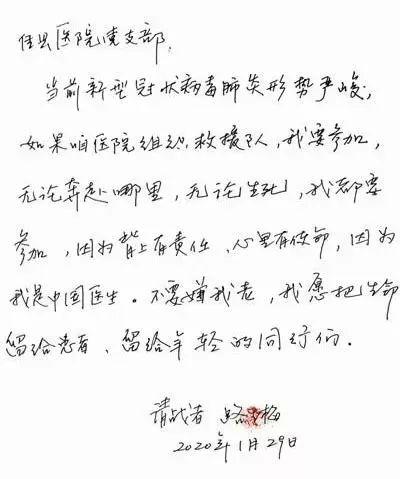 佳县医院党支部,
当前新型冠状病毒肺炎形势严峻,
如果咱医院组织救援队,我要参加,
无论奔赴哪里,无论生死,我都要
参加,因为背上有责任、心里有使命,因为
我是中国医生。不要嫌我老,我愿把生命
留给患者、留给年轻的同行们。
请战者 路 梅
2020年1月29日